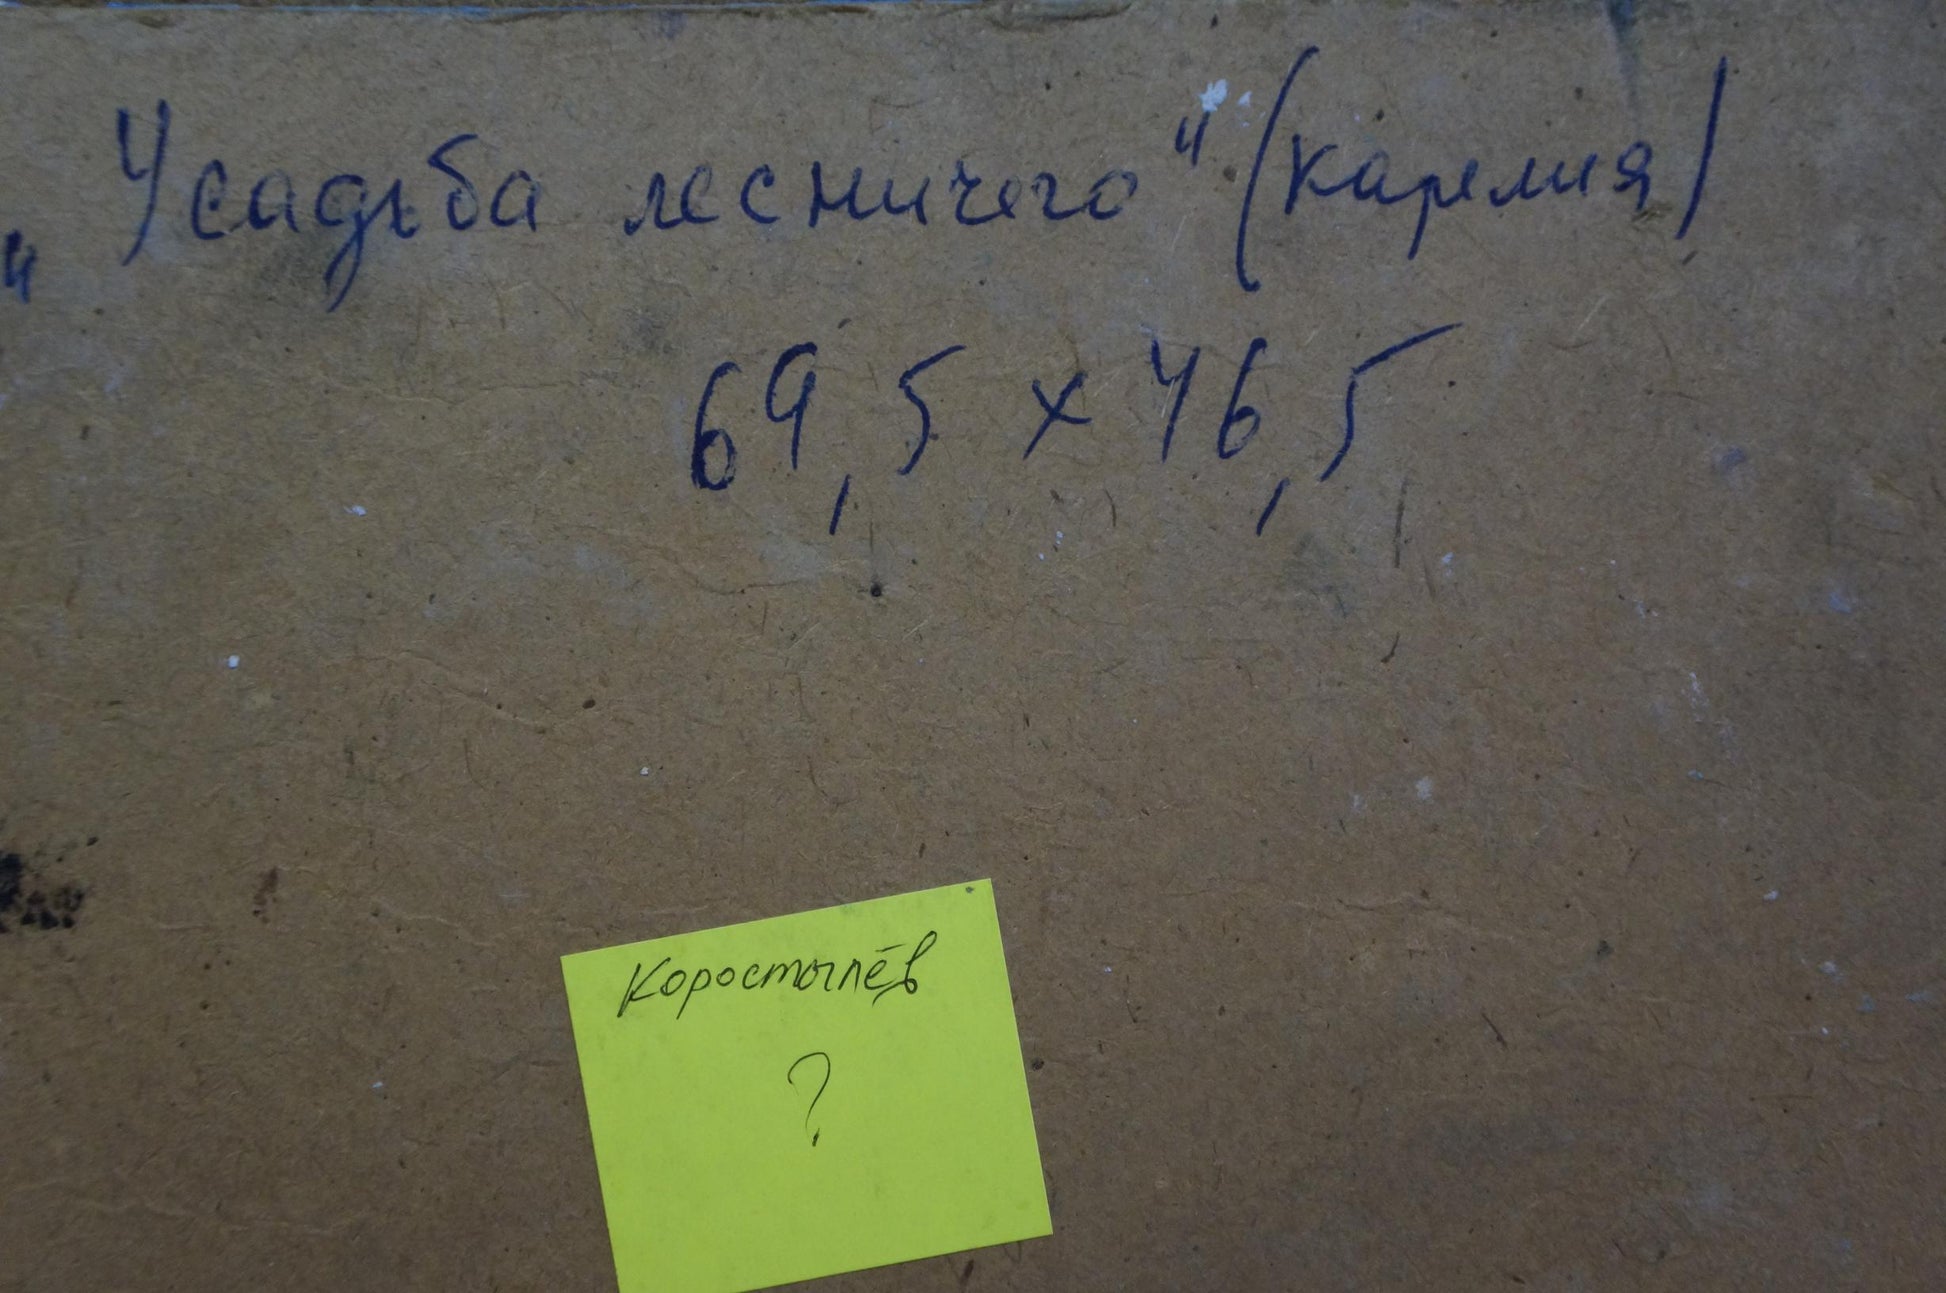 „Усадьба лесничего" (Карелия)
69,5 x 46,5
Коростылёв
?